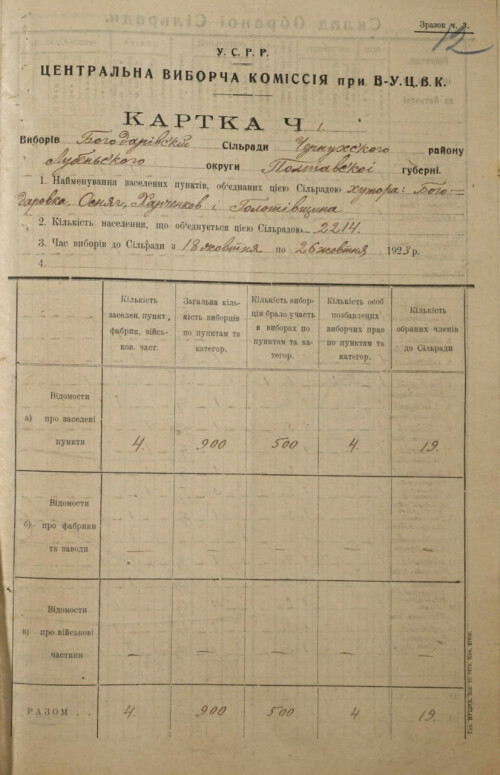 Зразок ч. 3.
12
У. С. Р. Р.
ЦЕНТРАЛЬНА ВИБОРЧА КОМІССІЯ при В-У.Ц.В.К.
КАРТКА Ч 1.
Виборів Богодарівскій Сільради Чернухского району
Лубньского округи Полтавскої губерні.
1. Найменування заселених пунктів, об'єднаних цією Сільрадою хутора: Бого-
даровка, Осняг, Харченков і Голотівщина
2. Кількість населення, що об'єднується цією Сільрадою 2214.
3. Час виборів до Сільради з 18 жовтня по 26 жовтня 1923 р.
4.
Кількість заселен. пункт, фабрик, військов. част.
Загальна кількість виборців по пунктам та категор.
Кількість виборців брало участь в виборах по пунктам та категор.
Кількість особ позбавлених виборчих прав по пунктам та категор.
Кількість обраних членів до Сільради
Відомости
а) про заселені
пункти 4. 900 500 4. 19.
Відомости
б) про фабрики
та заводи — — — — —
Відомости
в) про військові
частини — — — — —
РАЗОМ . . 4. 900 500 4 19.